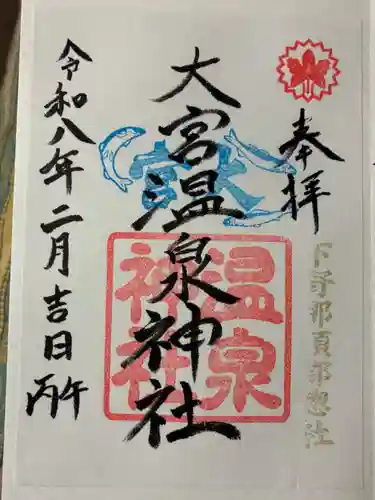 奉拝
下野那須郡惣社
大宮温泉神社
温泉神社
令和八年二月吉日
丙午